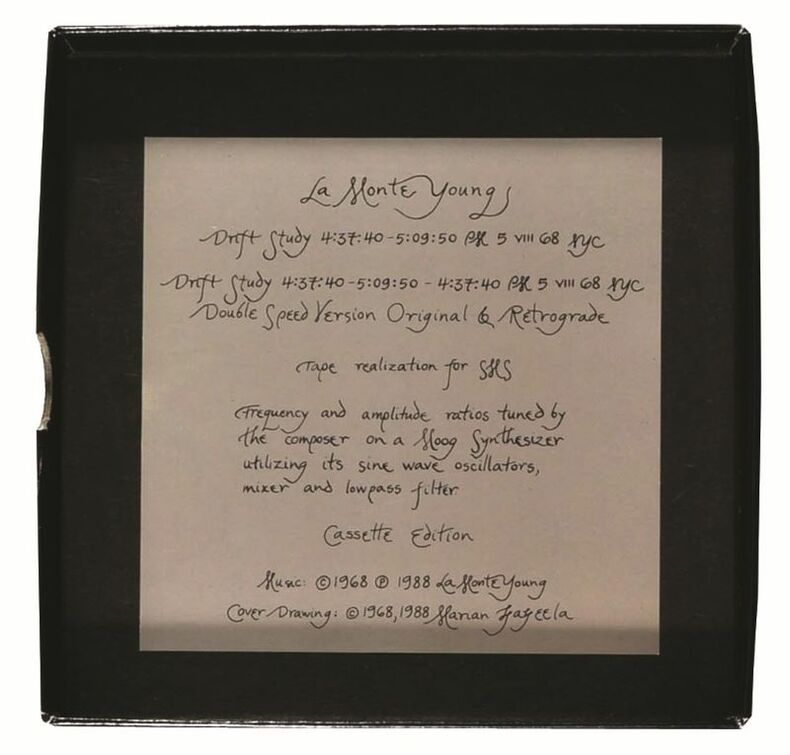 La Monte Young
Drift Study 4:37:40-5:09:50 PM 5 VIII 68 NYC
Drift Study 4:37:40-5:09:50 - 4:37:40 PM 5 VIII 68 NYC
Double Speed Version Original & Retrograde
Tape realization for SMS
Frequency and amplitude ratios tuned by
the composer on a Moog Synthesizer
utilizing its sine wave oscillators,
mixer and lowpass filter
Cassette Edition
Music: ©1968 ℗ 1988 La Monte Young
Cover Drawing: ©1968,1988 Marian Zazeela